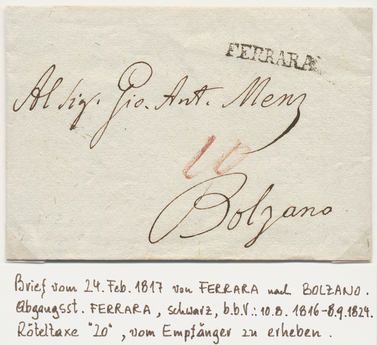 FERRARA
Al Sig. Gio. Ant. Menz
20
Bolzano
Brief vom 24. Feb. 1817 von FERRARA nach BOLZANO.
Abgangsst. FERRARA, schwarz, b.b.V.: 10.8. 1816-8.9.1824.
Röteltaxe "20", vom Empfänger zu erheben.